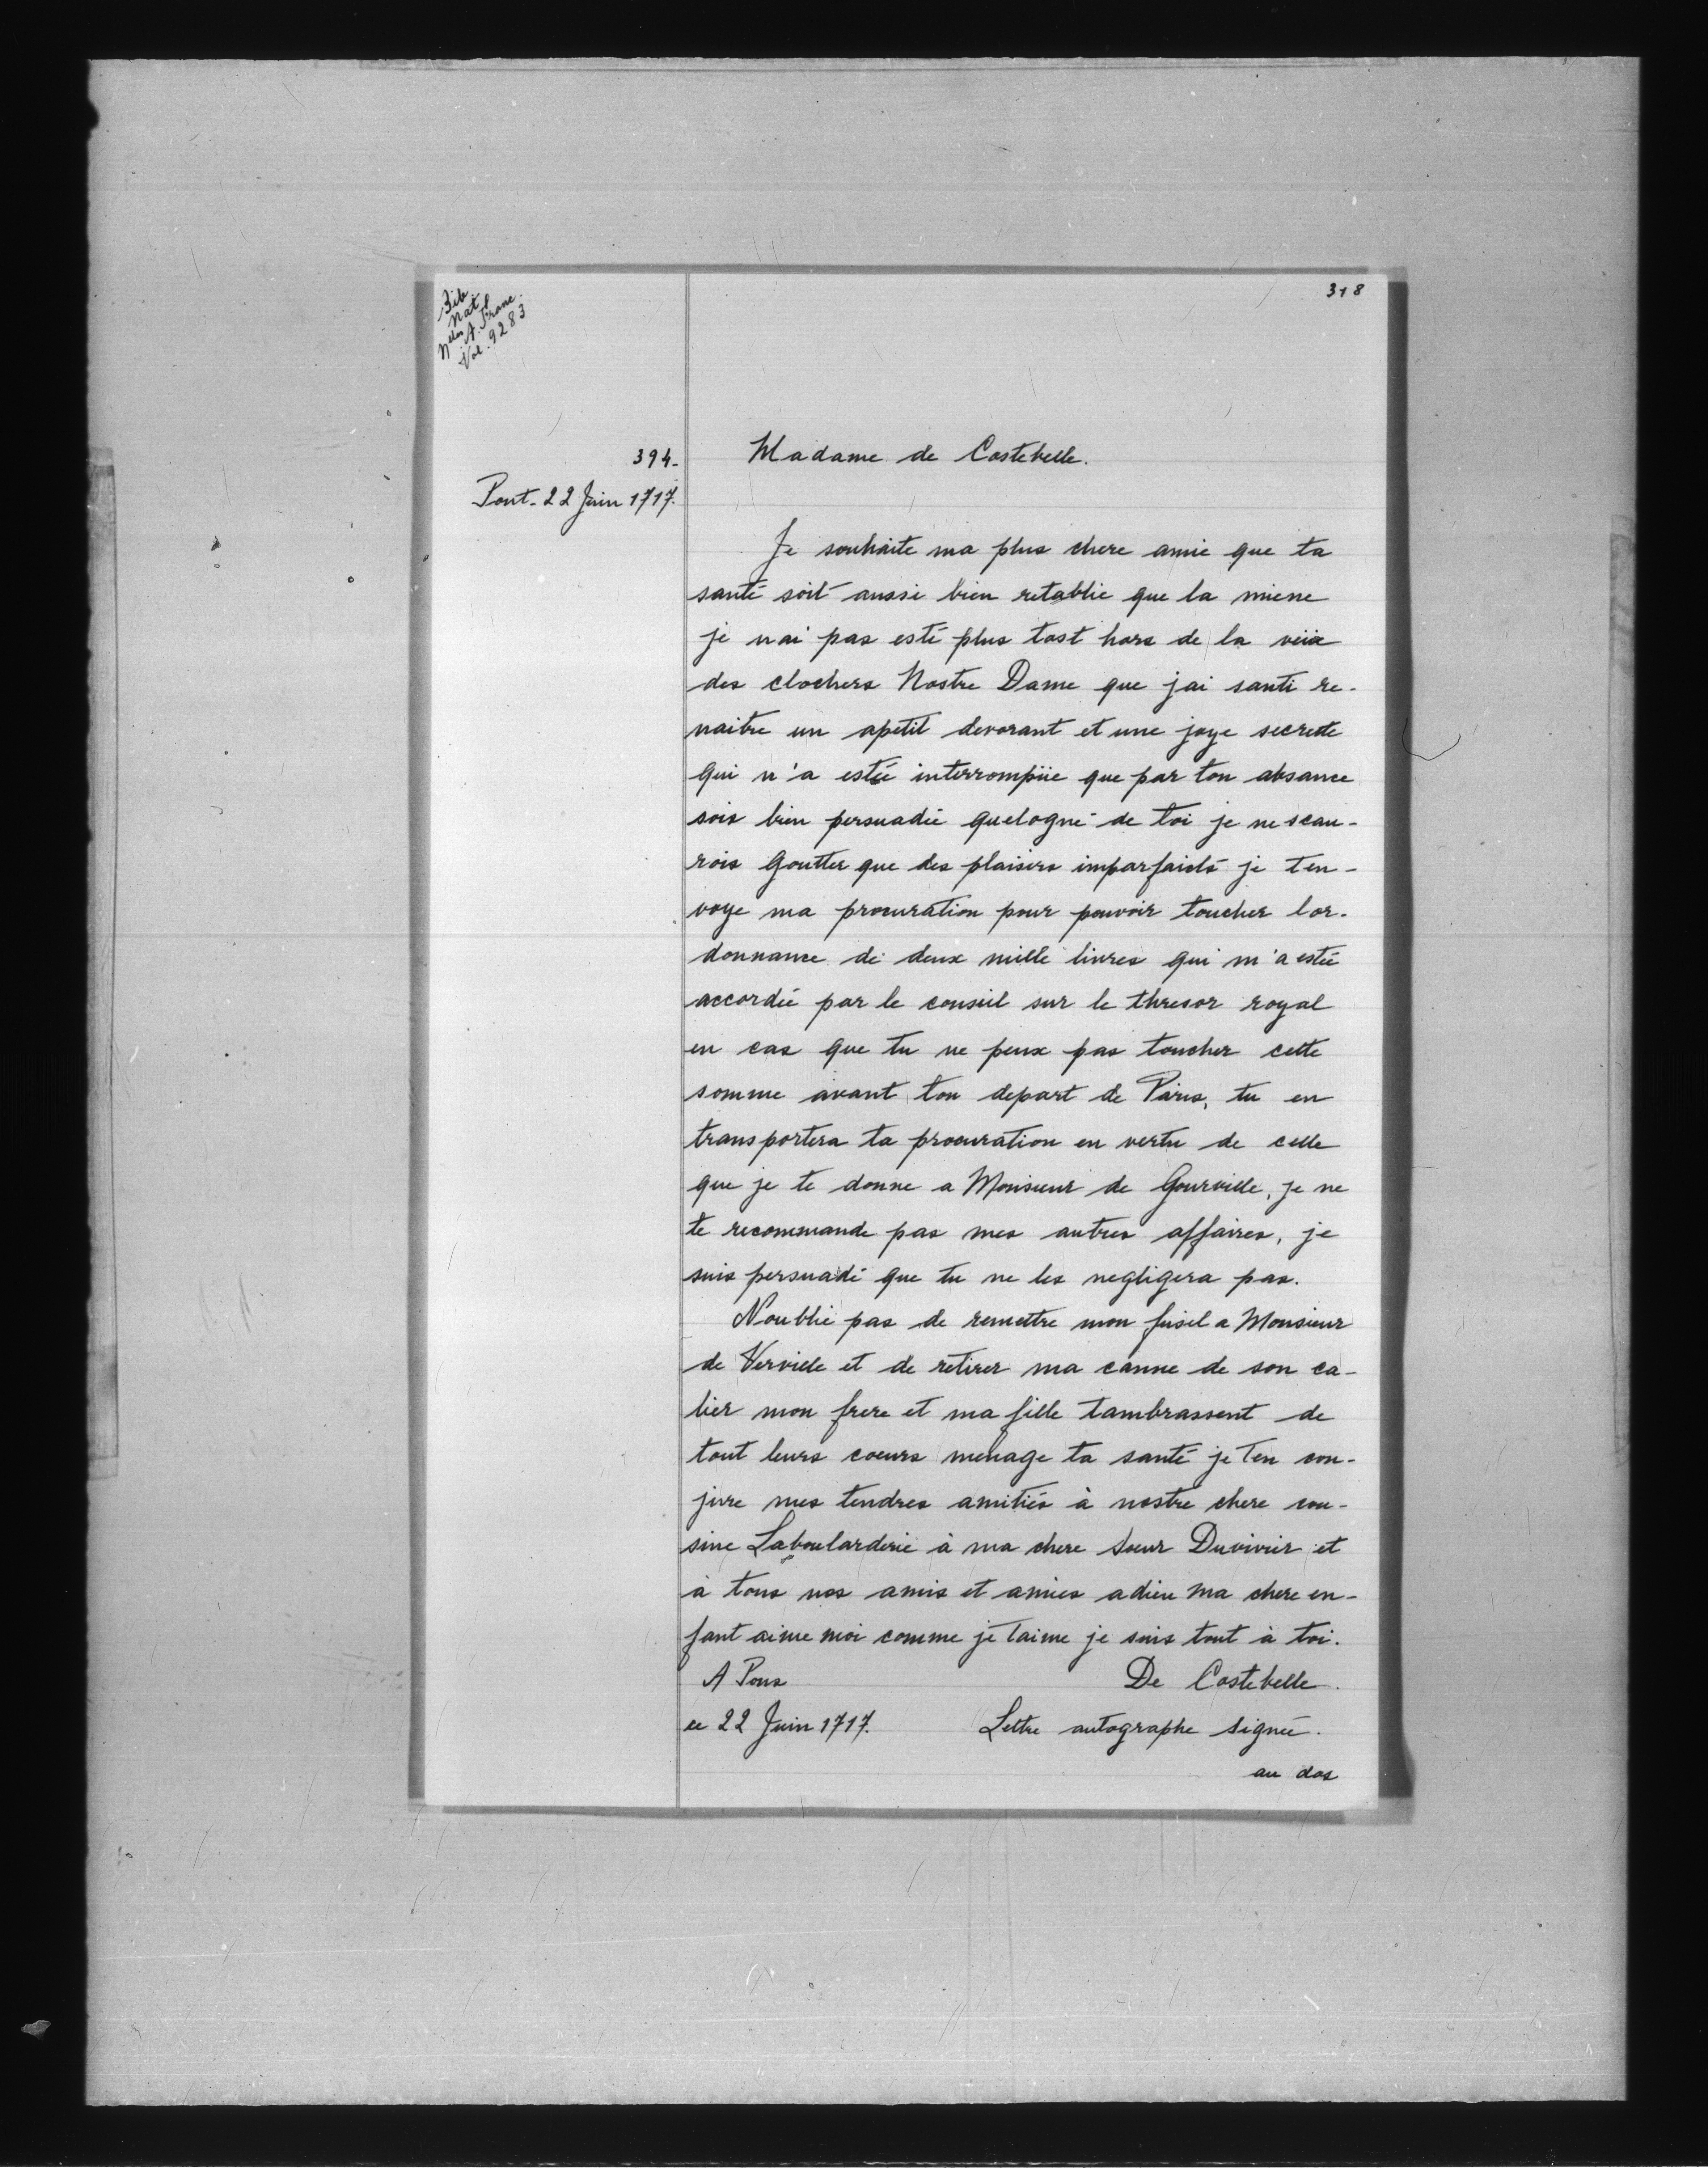 Bib.
Natl
Nelles A. Franc.
Vol. 9283
318
394-
Pont- 22 Juin 1717.
Madame de Costebelle.
Je souhaite ma plus chere amie que ta
santé soit aussi bien retablie que la miene
je nai pas esté plus tost hors de la veüe
des clochers Nostre Dame que jai santi re-
naitre un apetit devorant et une joye secrette
qui n'a estée interrompüe que par ton absance
sois bien persuadée quelogné de toi je ne scau-
rois goutter que des plaisirs imparfaicts je t'en-
voye ma procuration pour pouvoir toucher lor-
donnance de deux mille livres qui m'a estée
accordée par le conseil sur le thresor royal
en cas que tu ne peux pas toucher cette
somme avant ton depart de Paris, tu en
transportera ta procuration en vertu de celle
que je te donne a Monsieur de Gourville, je ne
te recommande pas mes autres affaires, je
suis persuadé que tu ne les negligera pas.
Noublie pas de remettre mon fusil a Monsieur
de Verville et de retirer ma canne de son ca-
lier mon frere et ma fille tambrassent de
tout leurs coeurs menage ta santé je t'en con-
jure mes tendres amitiés à nostre chere cou-
sine Laboularderie à ma chere soeur Duvivier et
à tous nos amis et amies adieu ma chere en-
fant aime moi comme je taime je suis tout à toi.
A Pons
De Costebelle.
ce 22 Juin 1717.
Lettre autographe signée.
au dos